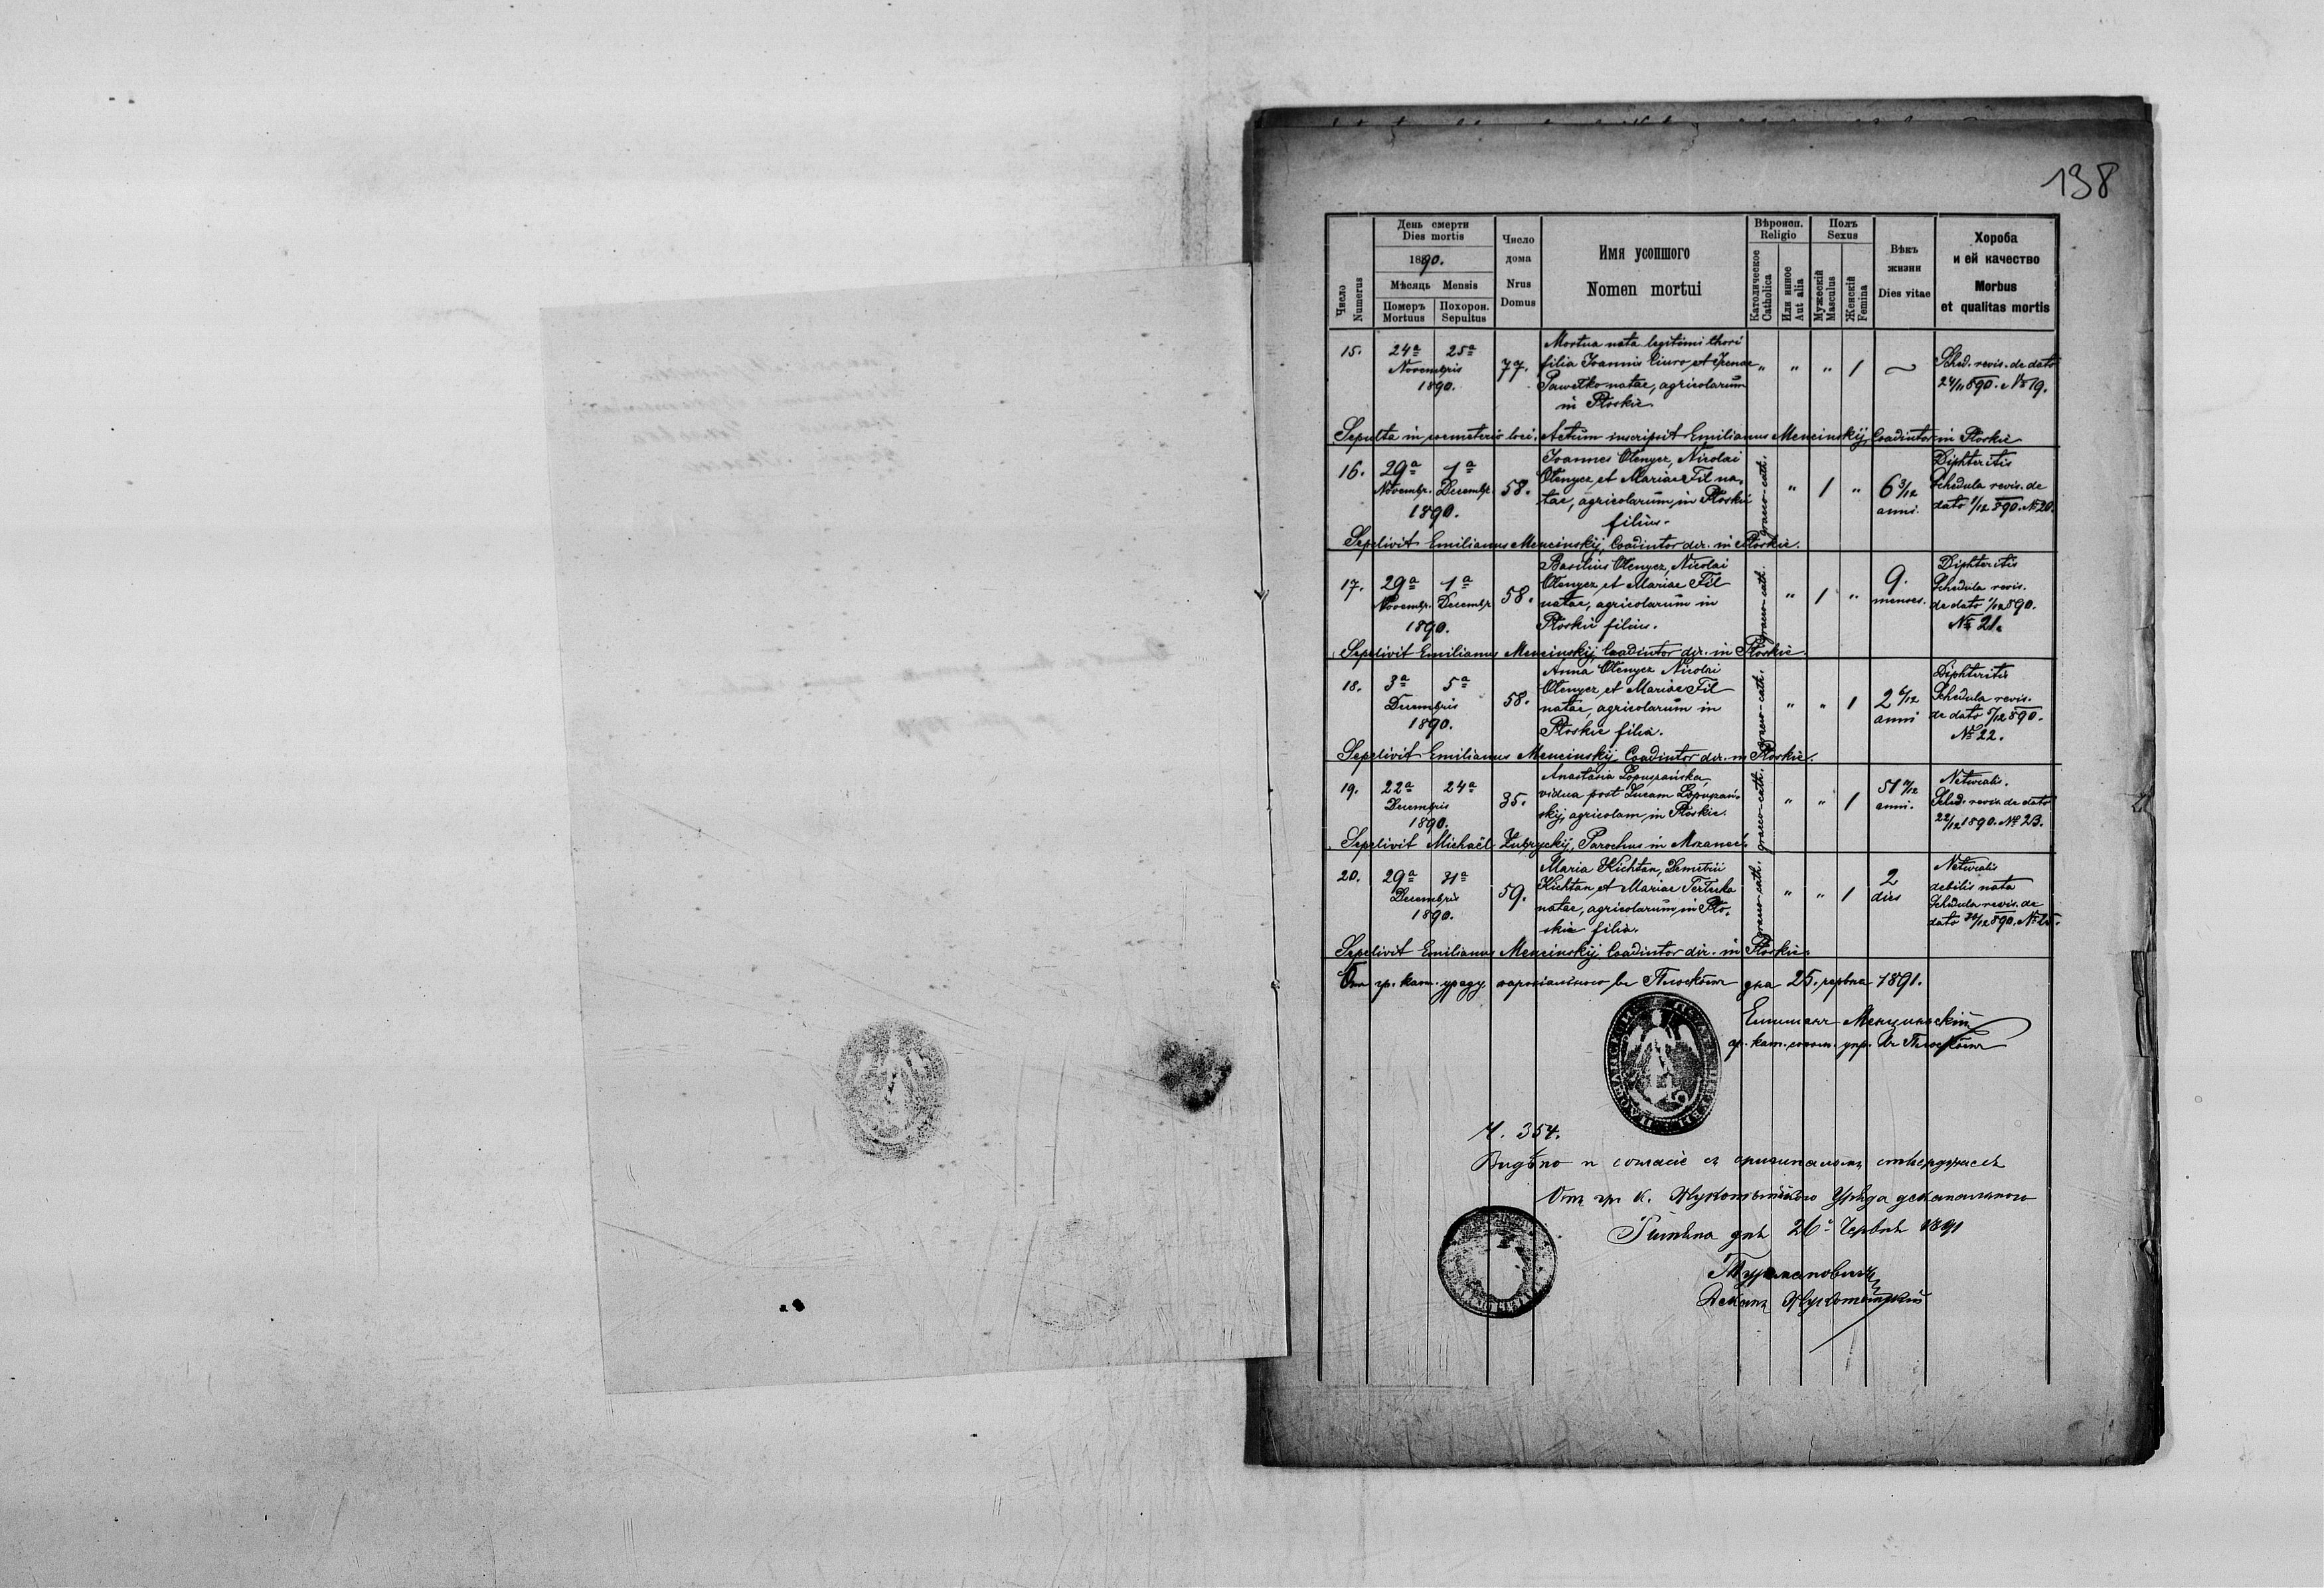 138
Число
Numerus
День смерти
Dies mortis
1890.
Мѣсяць Mensis
Померъ
Mortuus
Похорон.
Sepultus
Число
дома
Nrus
Domus
Имя усопшого
Nomen mortui
Вѣроисп.
Religio
Католическое
Catholica
Или иnное
Aut alia
Полъ
Sexus
Мужескій
Masculus
Женскій
Femina
Вѣкъ
жизни
Dies vitae
Хороба
и ей качество
Morbus
et qualitas mortis
15. 24a 25a
Novembris
1890.
77.
Mortua nata legitimi thori
filia Joannis Ciuro et Irenae
Pawełko natae, agricolarum
in Płoskie.
" " " 1 ~
Sched. revis. de dato
24/11 890. No 19.
Sepulta in coemeterio loci. Actum inscripsit Emilianus Mencinskij, Coadiutor in Płoskie
16. 29a 1a
Novembr. Decembr.
1890.
58.
Joannes Olenycz, Nicolai
Olenycz et Mariae Fil na-
tae, agricolarum in Płoskie
filius.
graeco-cath.
" 1 "
6 3/12
anni.
Diphteritis
Schedula revis. de
dato 1/12 890. No 20.
Sepelivit Emilianus Mencinskij, Coadiutor dir. in Płoskie.
17. 29a 1a
Novembr. Decembr
1890.
58.
Basilius Olenycz, Nicolai
Olenycz et Mariae Fil
natae, agricolarum in
Płoskie filius.
graeco-cath.
" 1 "
9.
menses.
Diphteritis
Schedula revis.
de dato 1/12 890.
No 21.
Sepelivit Emilianus Mencinskij, Coadiutor dir. in Płoskie.
18. 3a 5a
Decembris
1890.
58.
Anna Olenycz Nicolai
Olenycz et Mariae Fil
natae, agricolarum in
Płoskie filia.
graeco-cath.
" " 1
2 6/12
anni
Diphteritis
Schedula revis.
de dato 5/12 890.
No 22.
Sepelivit Emilianus Mencinskij Coadiutor dir. in Płoskie.
19. 22a 24a
Decembris
1890.
35.
Anastasia Łopuszańska,
vidua post Lucam Łopuszań-
skij, agricolam in Płoskie.
graeco-cath.
" " 1
anni.
Naturalis.
Sched. revis. de dato
22/12 1890. No 23.
Sepelivit Michaël Zubryckij, Parochus in Mszanec.
20. 29a 31a
Decembris
1890.
59.
Maria Kichtan, Demetrii
Kichtan et Mariae
natae, agricolarum in Pło-
skie filia.
graeco-cath.
" " 1
2
dies
Naturalis
debilis nata
Schedula revis. de
Sepelivit Emilianus Mencinskij, Coadiutor dir. in Płoskie.
Отъ гр. кат. уряду парохіального въ Плоскомъ дна 25. червца 1891.
Емиліанъ Менциньскій
гр. кат. сотр. упр. въ Плоскомъ
Ч. 354.
Видѣно и согласіе съ оригиналомъ стверджаесь
Отъ гр. к. Жукотиньского Уряда деканального
дня 26 Червця 1891
Деканъ Жукотинскій